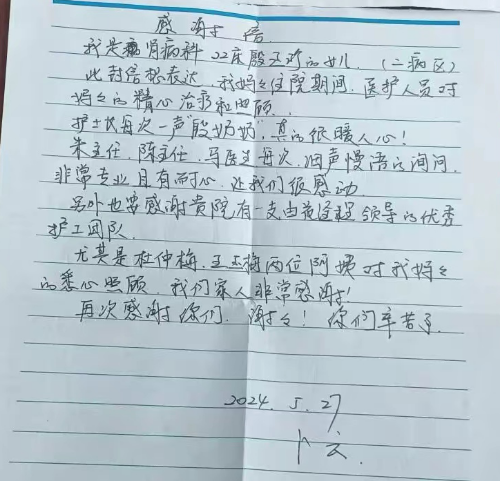 感谢信
我是肾病科22床殷玉珍的女儿.(二病区)
此封信想表达,我妈妈住院期间,医护人员对
妈妈的精心治疗和照顾.
护士长每次一声"殷奶奶",真的很暖人心!
朱主任,陈主任,马医生每次,细声慢语的询问,
非常专业且有耐心,让我们很感动.
另外也要感谢贵院,有一支由 领导的优秀
护工团队.
尤其是杜仲梅,王玉梅两位阿姨对我妈妈
的悉心照顾,我们家人非常感谢!
再次感谢你们,谢谢!你们辛苦了.
2024.5.27
卜云